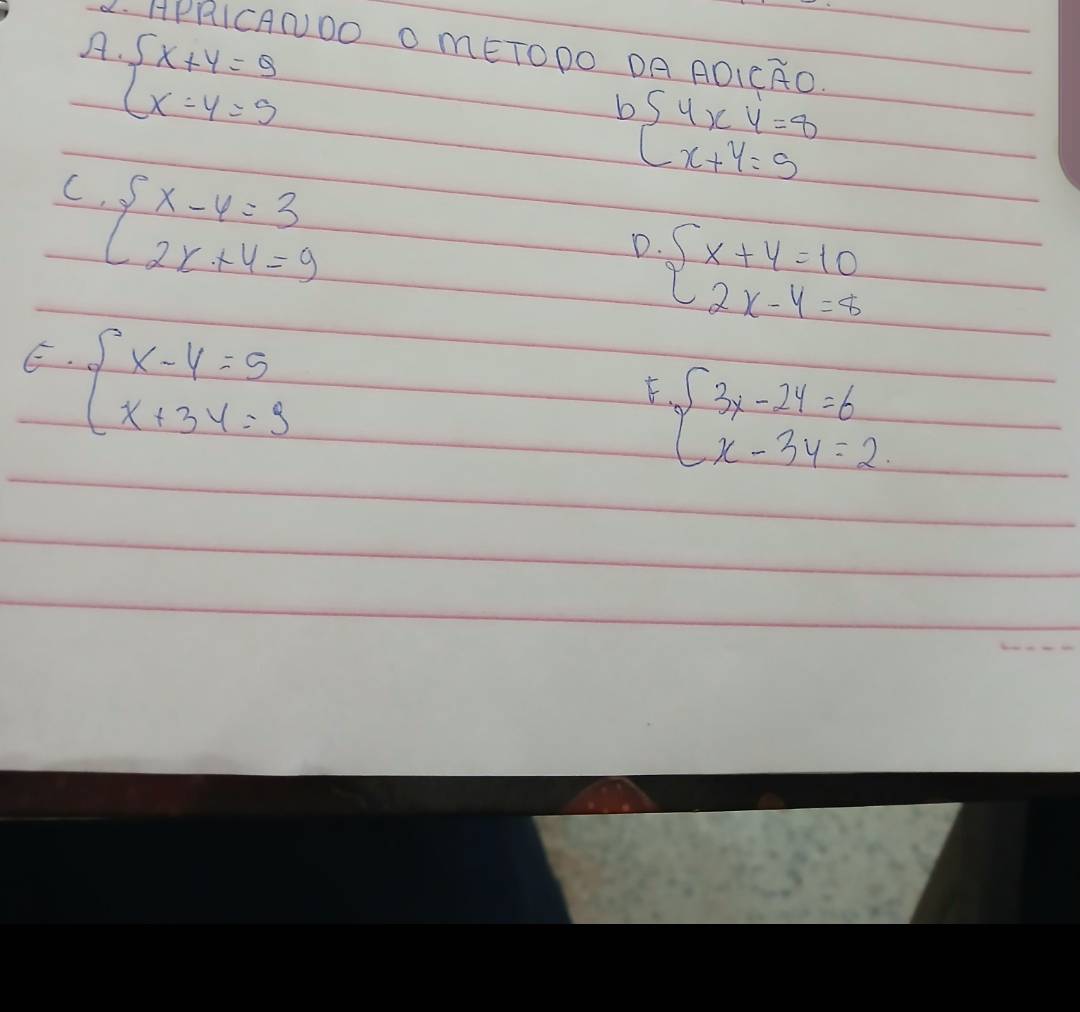 2. APRICANDO O METODO DA ADIÇÃO.
A. { x+y=9
x-y=9
b { 4x y=8
x+y=9
C. { x-y=3
2x+y=9
D. { x+y=10
2x-y=8
E. { x-y=5
x+3y=9
F. { 3x-2y=6
x-3y=2.